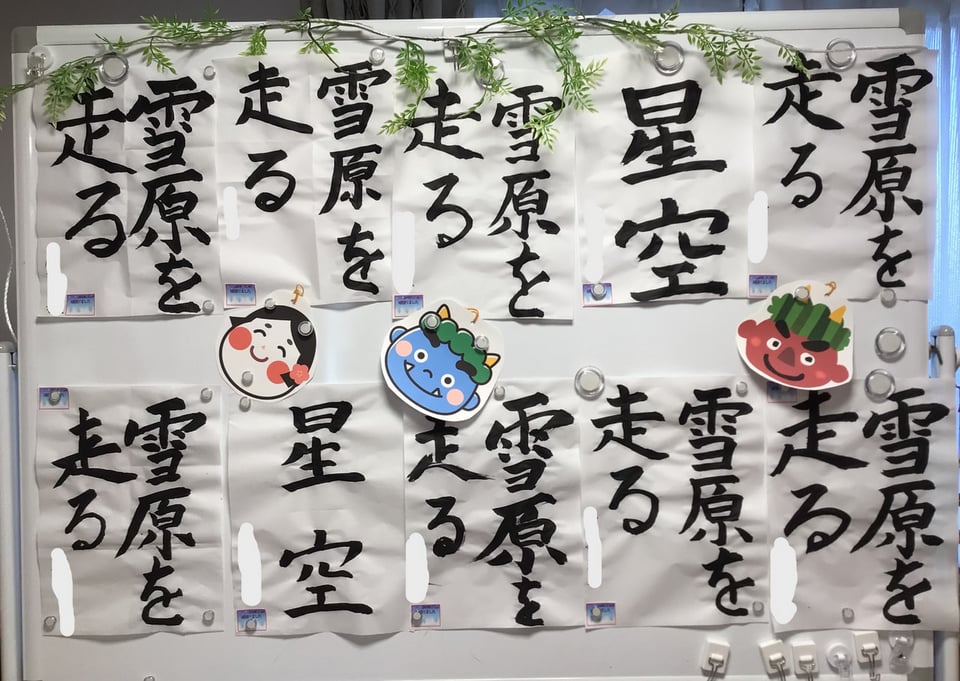 雪原を
走る
星空
雪原を
走る
雪原を
走る
雪原を
走る
雪原を
走る
雪原を
走る
雪原を
走る
星空
雪原を
走る